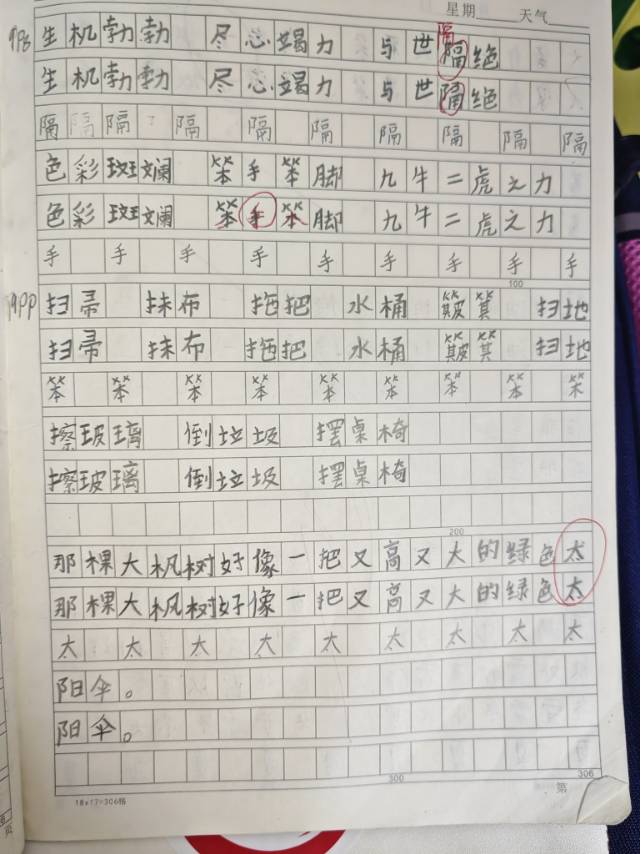 星期 天气
隔
P98 生机勃勃 尽心竭力 与世隔绝
生机勃勃 尽心竭力 与世隔绝
隔 隔 隔 隔 隔 隔 隔 隔 隔
色彩斑斓 笨手笨脚 九牛二虎之力
色彩斑斓 笨手笨脚 九牛二虎之力
手 手 手 手 手 手 手 手 手
100
扫帚 抹布 拖把 水桶 簸箕 扫地
扫帚 抹布 拖把 水桶 簸箕 扫地
笨 笨 笨 笨 笨 笨 笨 笨 笨
擦玻璃 倒垃圾 摆桌椅
擦玻璃 倒垃圾 摆桌椅
200
那棵大枫树好像一把又高又大的绿色太
那棵大枫树好像一把又高又大的绿色太
太 太 太 太 太 太 太 太 太
阳伞。
阳伞。
300 306
18×17=306格 第
页